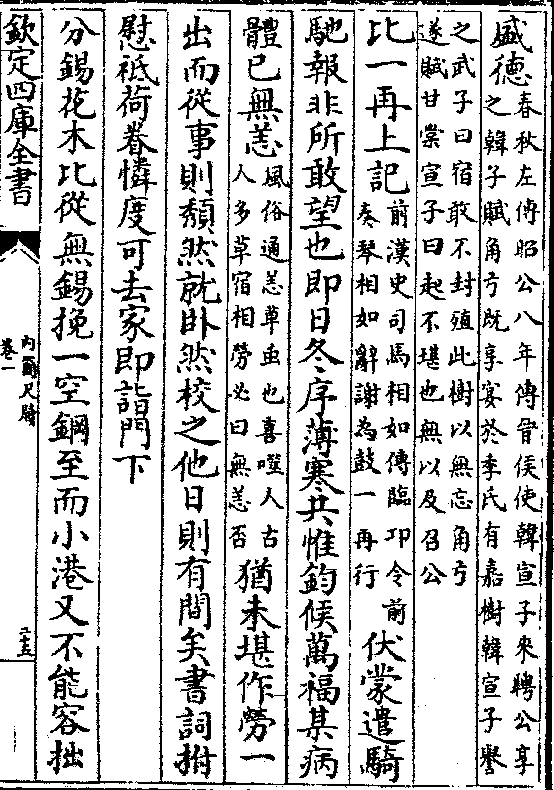 盛德
春秋左傳昭公八年傳晋侯使韓宣子來聘公享
之韓子賦角弓既享宴於季氏有嘉樹韓宣子譽
之武子曰宿敢不封殖此樹以無忘角弓
遂賦甘棠宣子曰起不堪也無以及召公
比一再上記
前漢史司馬相如傳臨卭令前
奏琴相如辭謝為鼓一再行
伏蒙遣騎
馳報非所敢望也即日冬序薄寒共惟鈞候萬福某病
體已無恙
風俗通恙草虫也喜噬人古
人多草宿相勞必曰無恙否
猶未堪作勞一
出而從事則頽然就卧然校之他日則有間矣書詞拊
慰祗荷眷憐度可去家即詣門下
分錫花木比從無錫挽一空鋼至而小港又不能容拙
欽定四庫全書
內簡尺牘
卷一
二十五